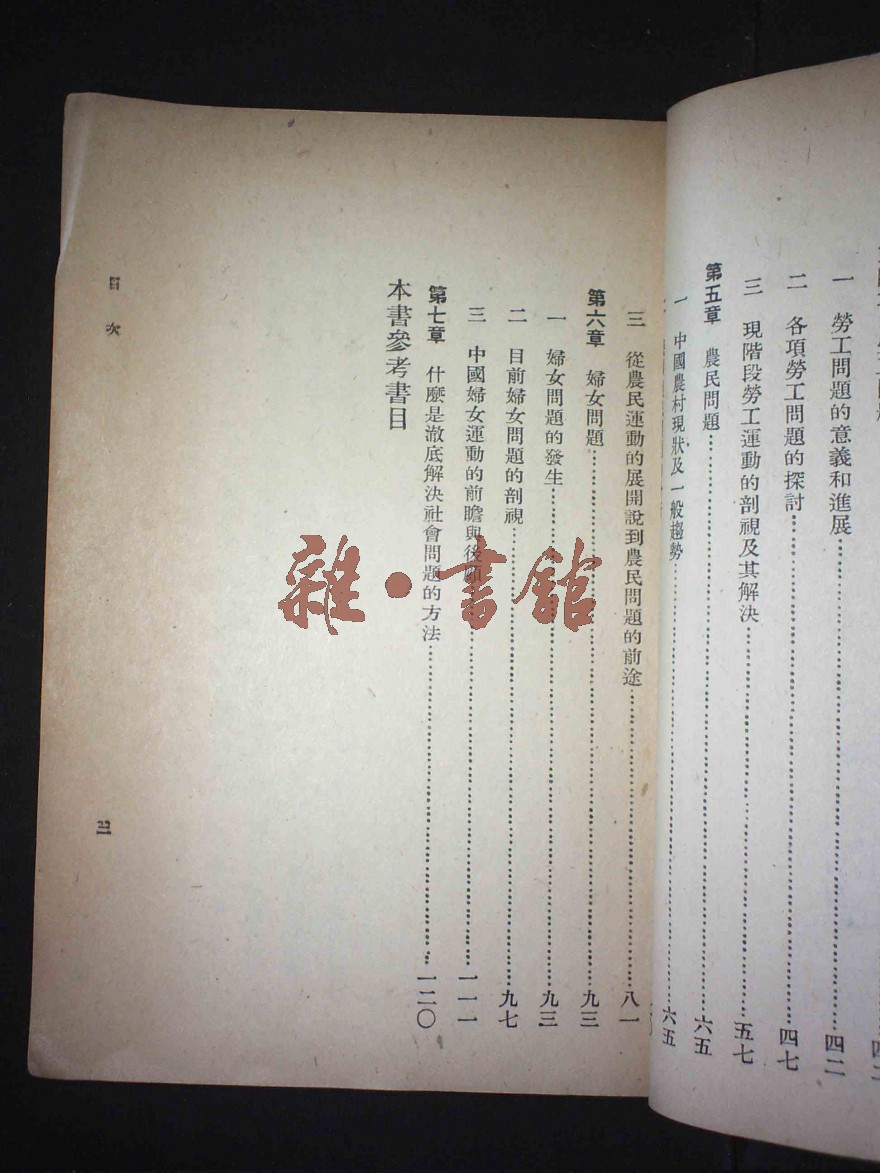 一　勞工問題的意義和進展……四二
二　各項勞工問題的探討……四七
三　現階段勞工運動的剖視及其解決……五七
第五章　農民問題……六五
一　中國農村現狀及一般趨勢……六五
三　從農民運動的展開說到農民問題的前途……八一
第六章　婦女問題……九三
一　婦女問題的發生……九三
二　目前婦女問題的剖視……九七
三　中國婦女運動的前瞻與後顧……一一一
第七章　什麼是澈底解決社會問題的方法……一二〇
本書參考書目
目次
三
雜・書館